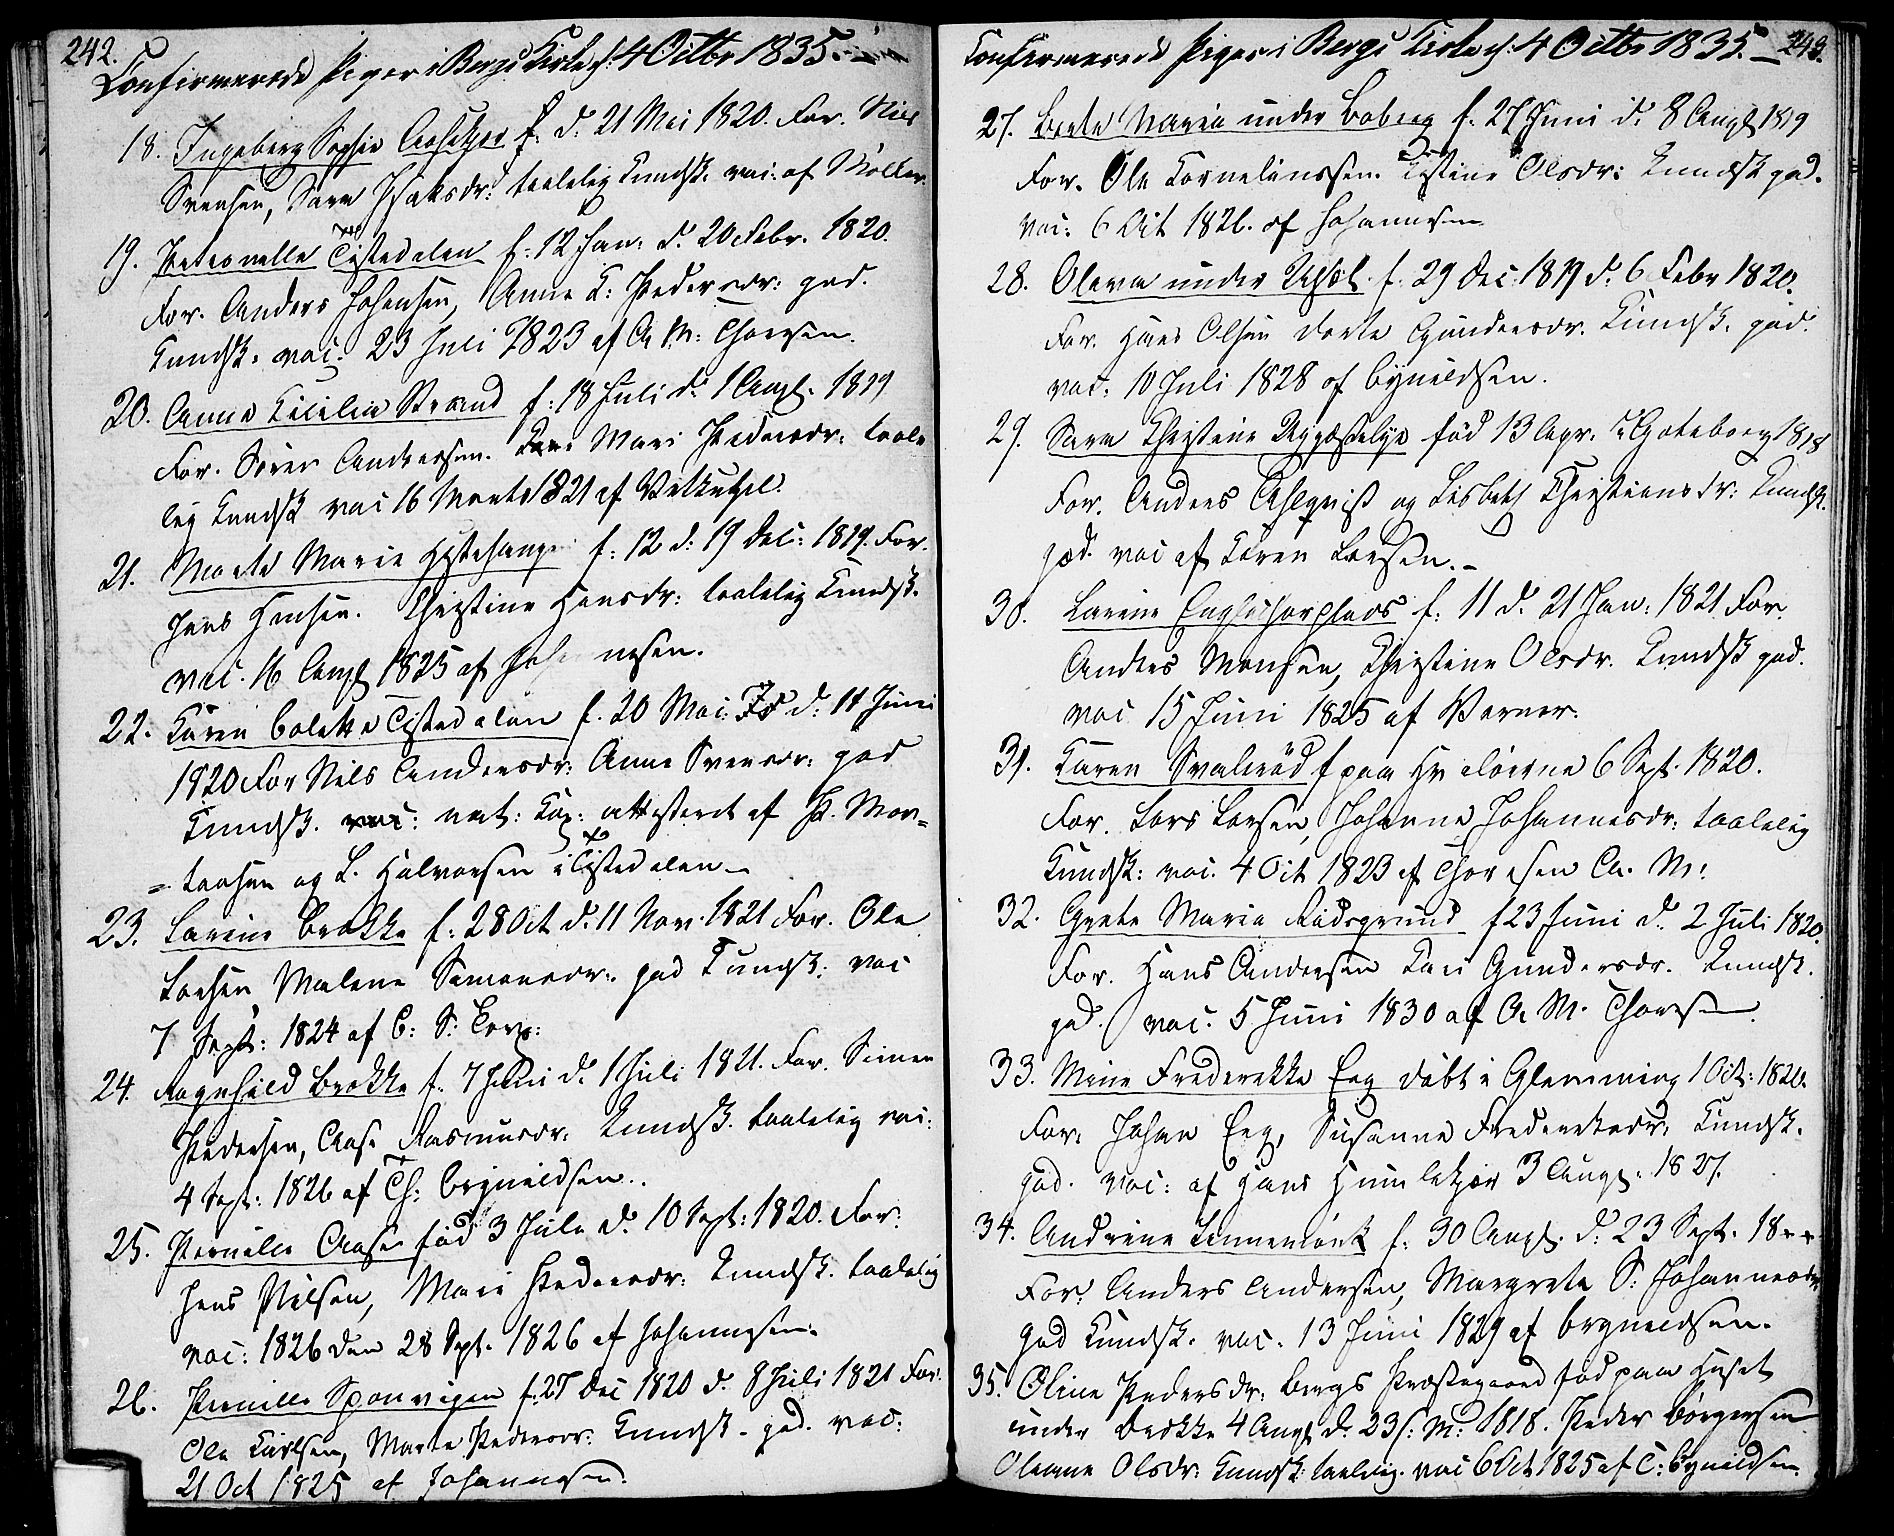 242.
Confirmerede Piger i Bergs Kirke d: 4 Octbr 1835.
18. Ingeborg Sophie f. d. 21 Mai 1820. For. Niels
Svensen, Sara Isaksdr: taalelig Kundsk. vac: af Møller.
19. Petronelle Tistedalen f: 12 Jan: d. 20 Febr. 1820.
For. Anders Johansen, Anne K: Pedersdr: god.
Kundsk. vac: 23 Juli 1823 af A. M: Thoresen.
20. Anne Kicilia Strand f: 18 Juli d. 1 Aug. 1819
For. Søren Andersen. Mari Pedersdr: taale
lig Kundsk vac 16 Marts 1821 af
21. Marte Marie f: 12 d. 19 Dec: 1819. For.
Hans Hansen. Christine Hansdr: taalelig Kundsk.
vac. 16 Aug 1825 af Johannesen.
22. Karen Bolette Tistedalen f. 20 Mai d: 11 Juni
1820 For Nils Andersdr: Anne Svensdr: god
Kundsk. vac: nat: Kop: attesteret af H. Mor=
=tensen og L. Halvorsen i Tistedalen
23. Larine Brække f: 28 Oct d. 11 Nov. 1821 For. Ole
Larsen, Malene Simonsdr. god Kundsk: vac
7 Sept: 1824 af C: S:
24. Ragnhild Brække f. 7 Juni d. 1 Juli 1821. For. Simen
Pedersen, Aase Rasmusdr. Kundsk. taalelig vac:
4 Sept: 1826 af Th: Brynildsen.
25. Pernille Aase fød 3 Jule d. 10 Sept: 1820. For.
Hans Nilsen, Mari Pedersdr: Kundsk. taalelig
vac: 1826 den 28 Spt. 1826 af Johannesen.
26. Pernille Sponvigen f. 27 Dec 1820 d. 8 Juli 1821 For.
Ole Karlsen, Marte Pedersdr: Kundsk. god. vac:
21 Oct 1825 af Johannesen.
Confirmerede Piger i Bergs Kirke d: 4 Octbr 1835. 243.
27. Berte Maria under Boberg f. 27 Juni d. 8 Aug 1819
For. Ole Cornelinssen. Tistine Olsdr: Kundsk god.
vac: 6 Oct 1826. af Johannesen
28. Oleva under f. 29 Dec: 1819 d. 6 Febr 1820.
For. Hans Olsen Dorte Gundersdr. Kundsk. god.
vac. 10 Juli 1828 af Bynildsen.
29. Sara Christine fød 13 Apr. i Gøteborg 1818
For. Anders Ahlqvist og Lisbeth Christiansdr: Kundsk.
god. vac af Karen Larsen.
30. Larine f: 11 d. 21 Jan: 1821 For.
Anders Monsen, Christine Olsdr. Kundsk god.
vac 15 Juni 1825 af Werner.
31. Karen Svalerød f paa Hvaløerne 6 Sept. 1820.
For. Lars Larsen, Johanne Johannesdr: taalelig
Kundsk: vac. 4 Oct 1823 af Thoresen A. M:
32. Grete Maria Rødsgrund f 23 Juni d. 2 Juli 1820.
For. Hans Andersen Kari Gundersdr. Kundsk.
god. vac. 5 Juni 1830 af A. M. Thoresen.
33. Mine Frederekke Eeg døbt i Glemming 1 Oct: 1820.
For: Johan Eeg, Susanne Frederiksdr. Kundsk.
god. vac: af Hans Humlekjær 3 Aug. 1827.
34. Andrine Linnemørk f: 30 Aug. d: 23 Sept. 18
For: Anders Andersen, Margrete S: Johannesdr
god Kundsk. vac. 13 Juni 1829 af Brynildsen.
35. Oline Pedersdr: Bergs Præstegaard fød paa Huset
under Brække 4 Aug d. 23 s: M: 1818. Peder Børgersen
Oleane Olsdr: Kundsk: taalelig. vac 6 Oct 1825 af C: Bynildsen.